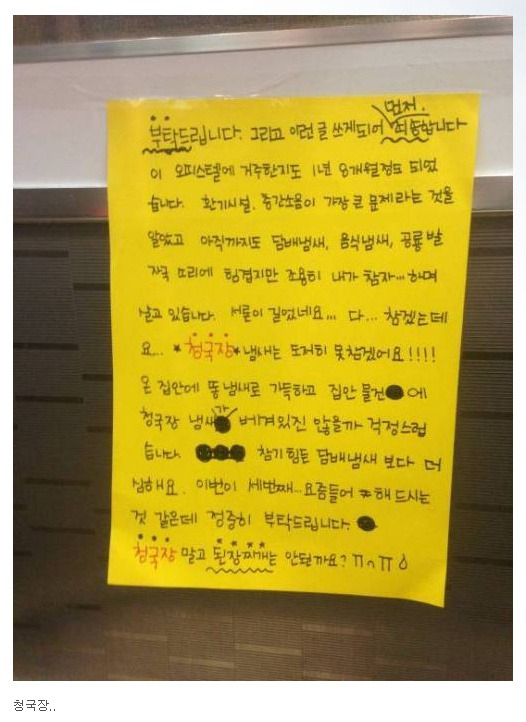 부탁드립니다. 그리고 이런 글 쓰게되어 먼저. 죄송합니다
이 오피스텔에 거주한지도 1년 8개월정도 되었
습니다. 환기시설, 층간소음이 가장 큰 문제라는 것을
알았고 아직까지도 담배냄새, 음식냄새, 공룡 발
자국 소리에 힘겹지만 조용히 내가 참자...하며
살고 있습니다. 서론이 길었네요... 다... 참겠는데
요... *청국장* 냄새는 도저히 못참겠어요!!!!
온 집안에 똥 냄새로 가득하고 집안 물건에
청국장 냄새가 베겨있진 않을까 걱정스럽
습니다. 참기 힘든 담배냄새 보다 더
심해요. 이번이 세번째...요즘들어 해 드시는
것 같은데 정중히 부탁드립니다.
청국장 말고 된장찌개는 안될까요? ㅠㅠ
청국장..